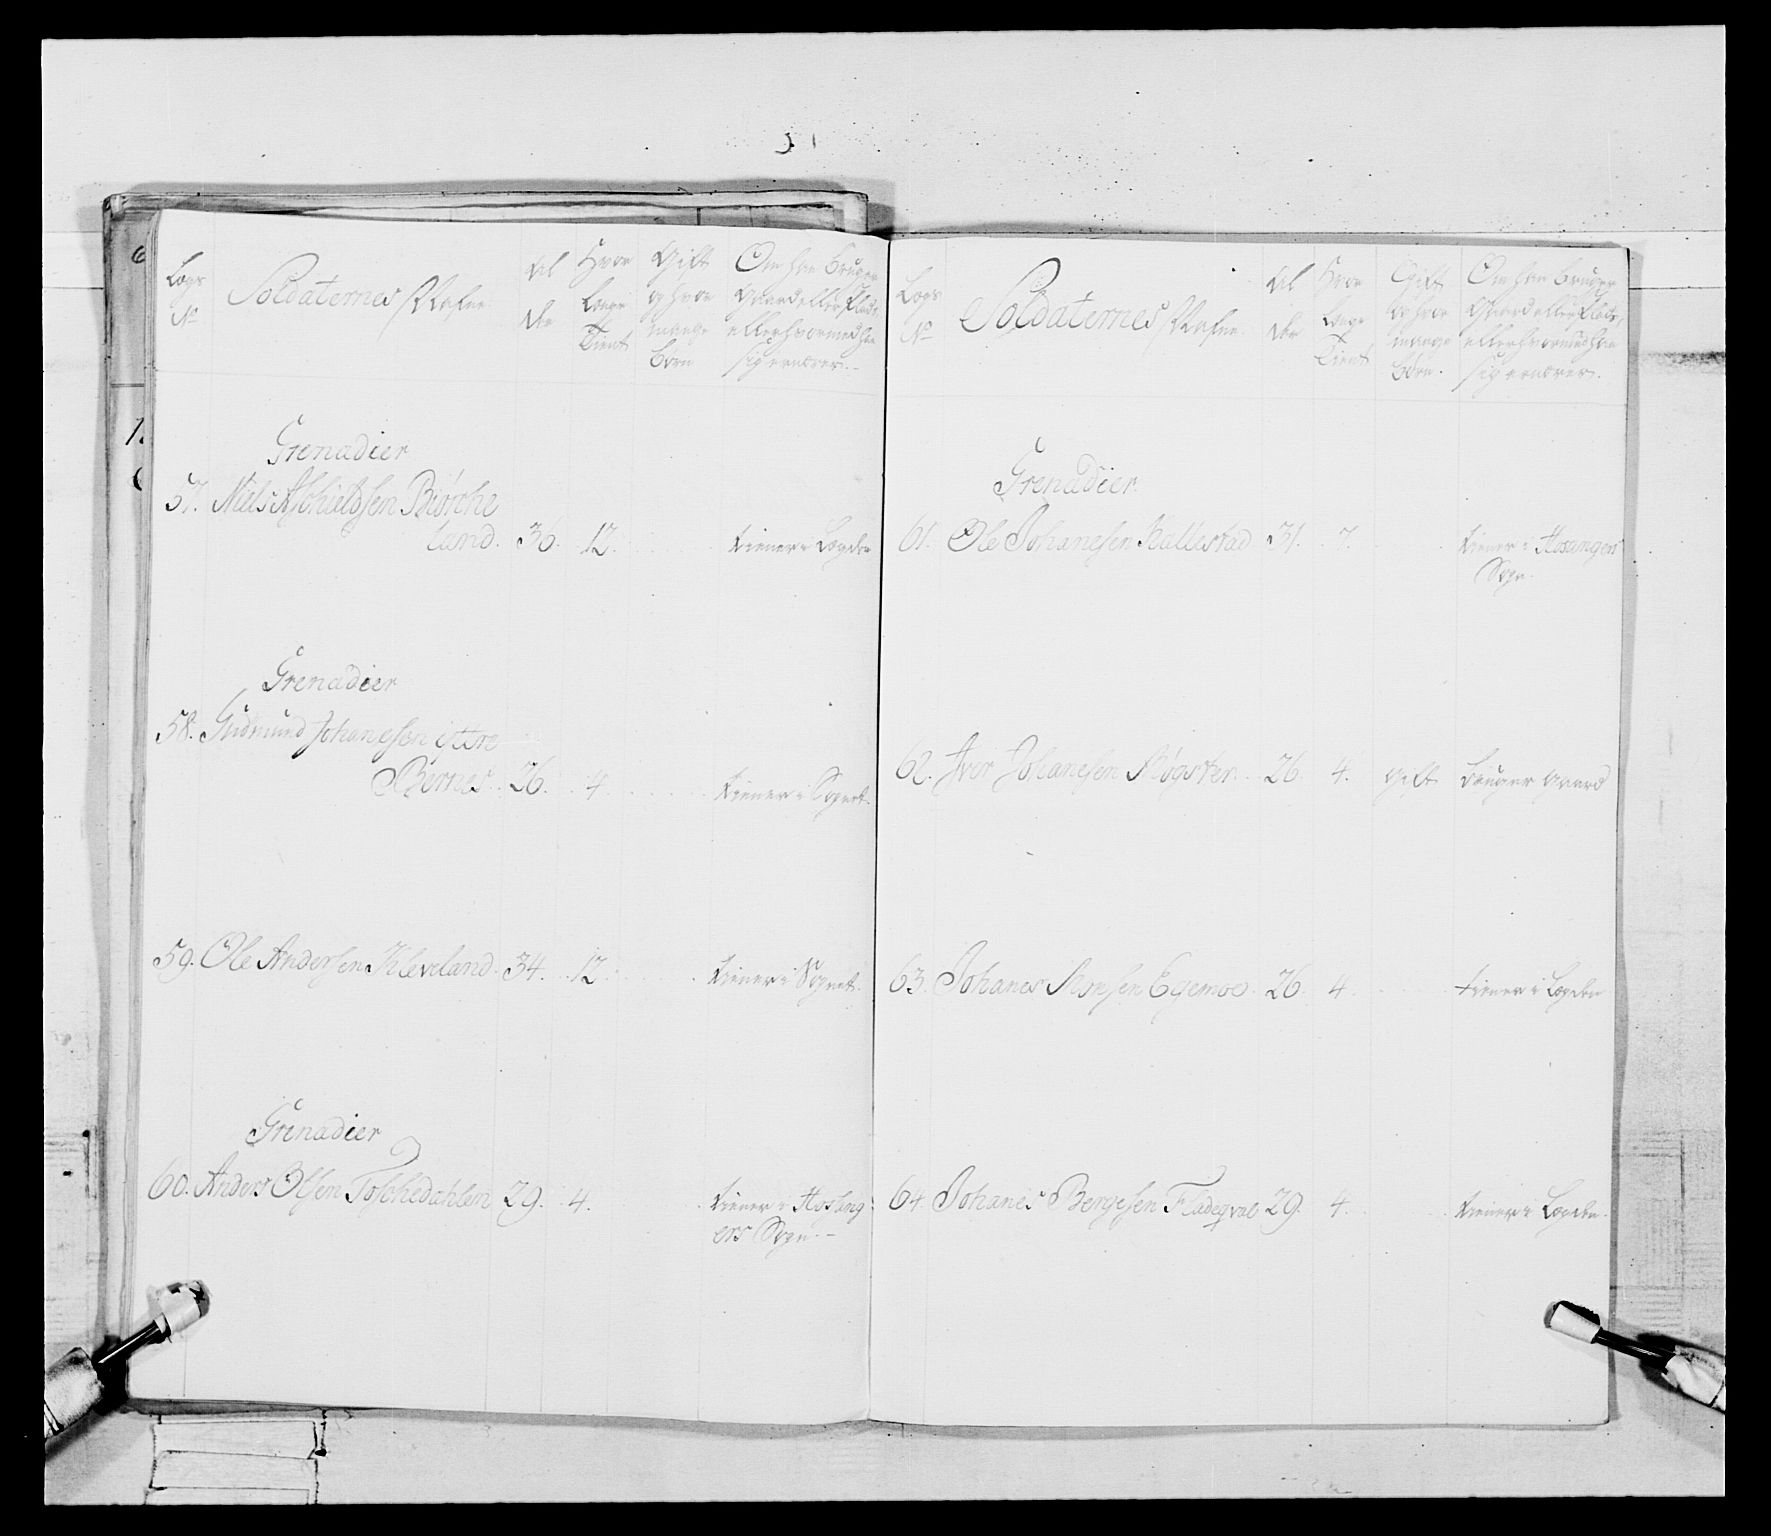 Lægs No
Soldaternes Nafne
Al der
Hvor Længe Tient
Gift og hvor mange Børn
Om han bruger Gaard eller Plads, eller hvormed han sig ernærer.
Grenadier
57. Niels Aschieldsen Biørche
land. 36. 12. tiener i Lægden
Grenadier
58. Gudmund Johanesen ittre
Bernes. 26. 4. tiener i Sognet.
59. Ole Andersen Kleveland. 34. 12. tiener i Sognet.
Grenadier
60. Anders Olsen Toschedahlen 29. 4. tiener i Hosang
ers Sogn.
Lægs No
Soldaternes Nafne.
Al der
Hvor Længe Tient
Gift og hvor mange Børn.
Om han bruger Gaard eller Plads, eller hvormed han sig ernærer.
Grenadier.
61. Ole Johanesen Kallestad 31. 7. tiener i Hosanger
Sogn.
62. Iver Johanesen Møgster. 26. 4. gift bruger gaard
63. Johanes Monsen Egemoe. 26. 4. tiener i Lægden
64. Johanes Bergesen Fladeqval 29. 4. tiener i Lægden.